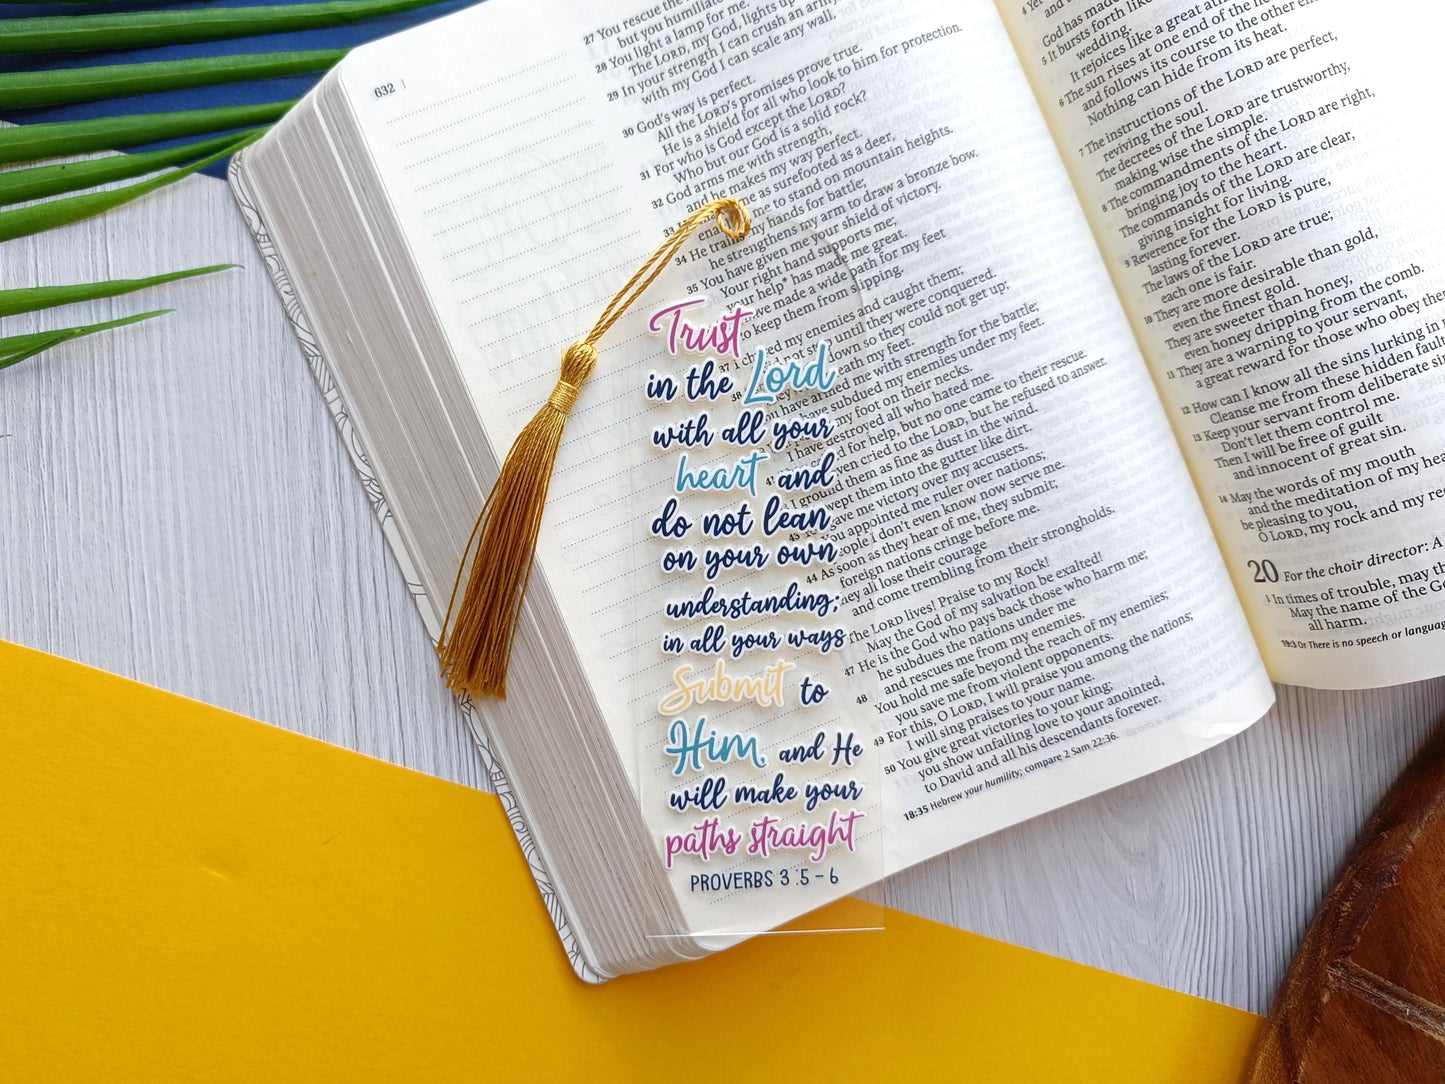 632
27 You rescue the
but you humiliate
28 You light a lamp for me.
The LORD, my God, lights up
29 In your strength I can crush an army
with my God I can scale any wall.
30 God's way is perfect.
All the LORD's promises prove true.
He is a shield for all who look to him for protection.
31 For who is God except the LORD?
Who but our God is a solid rock?
32 God arms me with strength,
and he makes my way perfect.
33
me as surefooted as a deer,
me to stand on mountain heights.
34 He trains my hands for battle;
he strengthens my arm to draw a bronze bow.
35 You have given me your shield of victory.
Your right hand supports me;
your help* has made me great.
made a wide path for my feet
to keep them from slipping.
37 I chased my enemies and caught them;
until they were conquered.
down so they could not get up;
beneath my feet.
have armed me with strength for the battle;
have subdued my enemies under my feet.
my foot on their necks.
have destroyed all who hated me.
for help, but no one came to their rescue.
even cried to the LORD, but he refused to answer.
I ground them as fine as dust in the wind.
swept them into the gutter like dirt.
gave me victory over my accusers.
You appointed me ruler over nations;
people I don't even know now serve me.
44 As soon as they hear of me, they submit;
foreign nations cringe before me.
They all lose their courage
and come trembling from their strongholds.
The LORD lives! Praise to my Rock!
May the God of my salvation be exalted!
47 He is the God who pays back those who harm me;
he subdues the nations under me
48 and rescues me from my enemies.
You hold me safe beyond the reach of my enemies;
you save me from violent opponents.
49 For this, O LORD, I will praise you among the nations;
I will sing praises to your name.
50 You give great victories to your king;
you show unfailing love to your anointed,
to David and all his descendants forever.
18:35 Hebrew your humility; compare 2 Sam 22:36.
Trust
in the Lord
with all your
heart and
do not lean
on your own
understanding;
in all your ways
Submit to
Him, and He
will make your
paths straight
PROVERBS 3:5-6
God has made
5 It bursts forth like
wedding.
It rejoices like a great
6 The sun rises at one end of the
and follows its course to the other end
Nothing can hide from its heat.
7 The instructions of the LORD are perfect,
reviving the soul.
The decrees of the LORD are trustworthy,
making wise the simple.
8 The commandments of the LORD are right,
bringing joy to the heart.
The commands of the LORD are clear,
giving insight for living.
9 Reverence for the LORD is pure,
lasting forever.
The laws of the LORD are true;
each one is fair.
10 They are more desirable than gold,
even the finest gold.
They are sweeter than honey,
even honey dripping from the comb.
11 They are a warning to your servant,
a great reward for those who obey them
12 How can I know all the sins lurking in
Cleanse me from these hidden faults
13 Keep your servant from deliberate sins
Don't let them control me.
Then I will be free of guilt
and innocent of great sin.
14 May the words of my mouth
and the meditation of my heart
be pleasing to you,
O LORD, my rock and my
20 For the choir director: A
1 In times of trouble, may the
May the name of the
all harm.
19:3 Or There is no speech or language